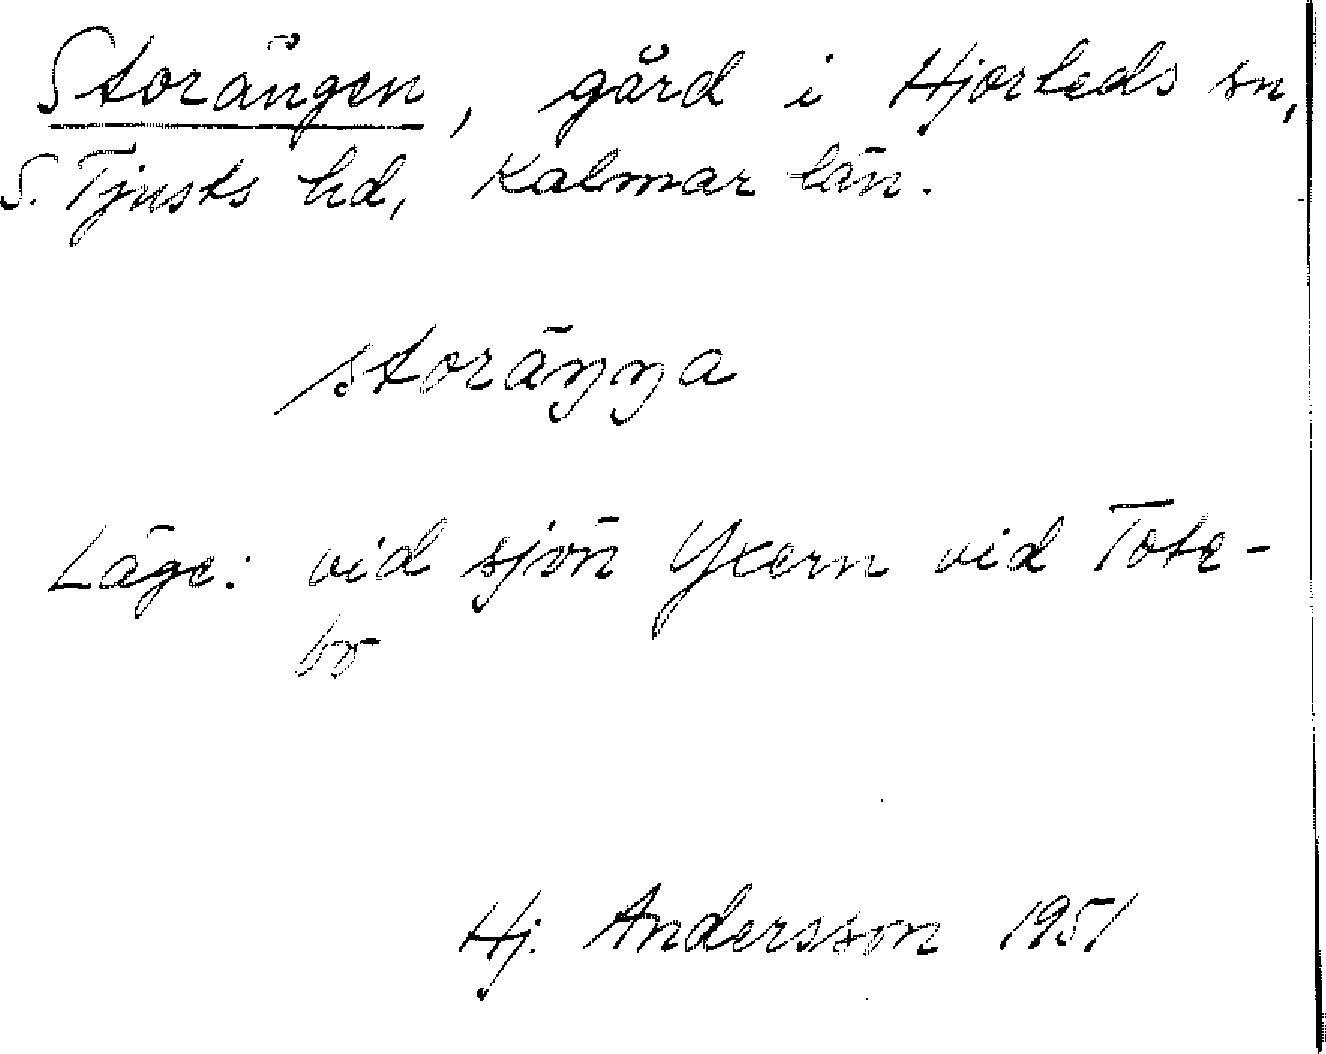 Storängen, gård i Hjorteds sn,
S. Tjusts hd, Kalmar län.
storäŋŋa
Läge: vid sjön Yxern vid Tote-
bo
Hj. Andersson 1951